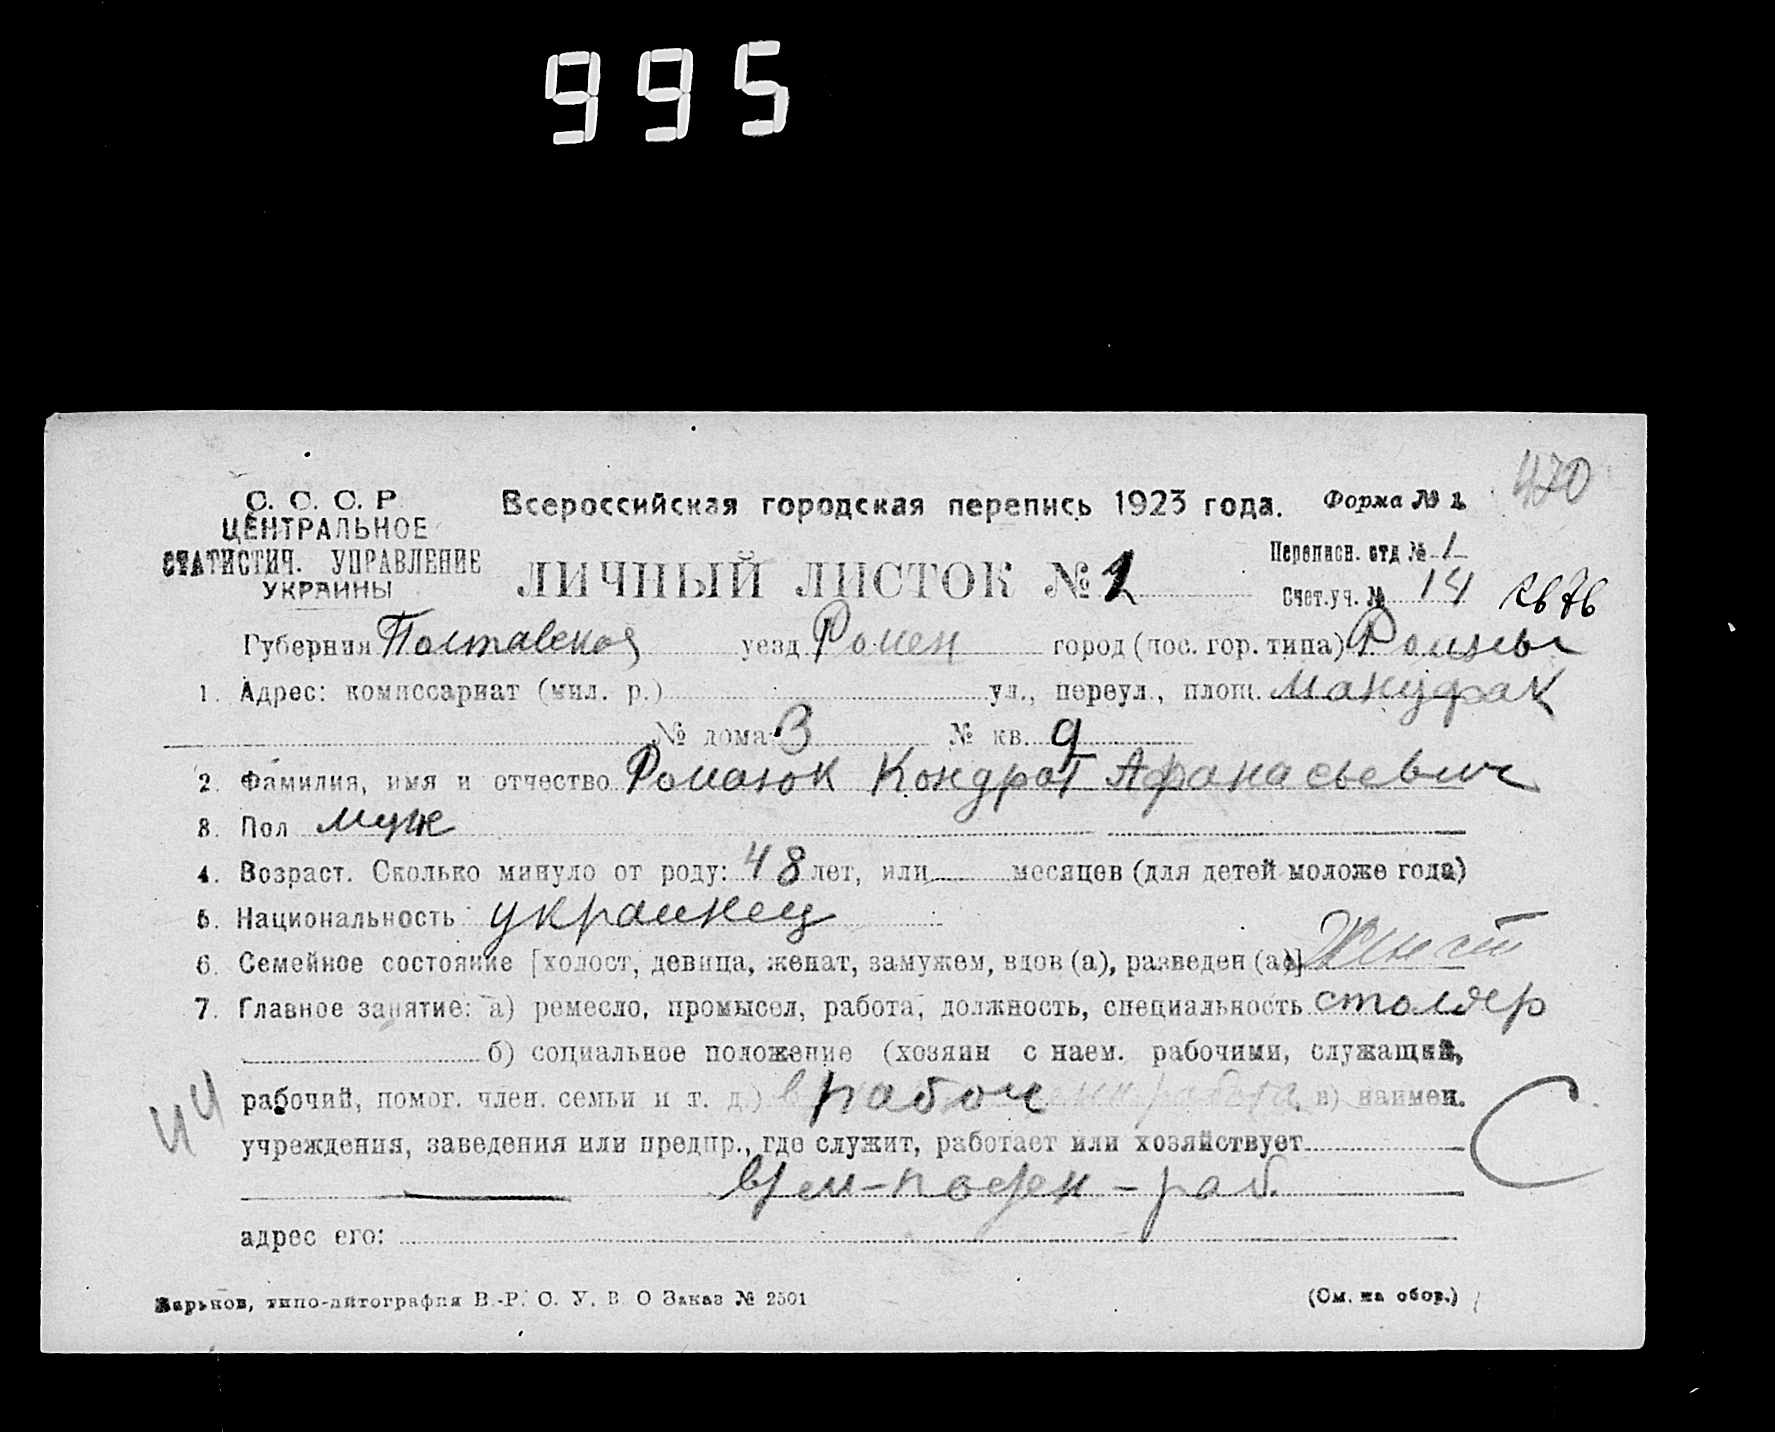 995
470
С. С. С. Р
ЦЕНТРАЛЬНОЕ
СТАТИСТИЧ. УПРАВЛЕНИЕ
УКРАИНЫ
Всероссийская городская перепись 1923 года. Форма № 1
Переписн. отд № 1
ЛИЧНЫЙ ЛИСТОК № 1
Счет.уч. № 14
Губерния Полтавская уезд Ромен город (пос. гор. типа) Ромны
1. Адрес: комиссариат (мил. р.) ул., переул., площ.
№ дома 3 № кв. 9
2. Фамилия, имя и отчество Романюк Кондрат Афанасьевич
3. Пол муж
4. Возраст. Сколько минуло от роду: 48 лет, или месяцев (для детей моложе года)
5. Национальность украинец
6. Семейное состояние [холост, девица, женат, замужем, вдов (а), разведен (а)]
7. Главное занятие: а) ремесло, промысел, работа, должность, специальность столяр
б) социальное положение (хозяин с наем. рабочими, служащий,
44 рабочий, помог. член. семьи и т. д.) рабоч в) наимен.
учреждения, заведения или предпр., где служит, работает или хозяйствует
С
врем-поден-раб.
адрес его:
Харьков, типо-литография В.-Р. О. У. В О Заказ № 2501 (См. на обор.)